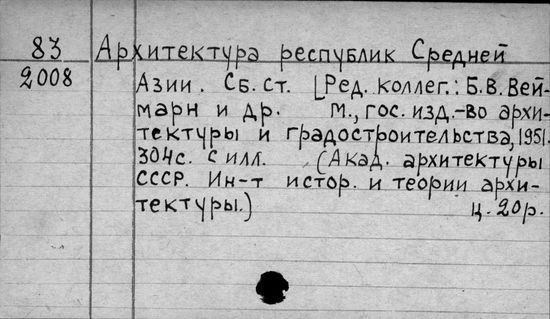 83 Архитектура республик Средней
2008 Азии. Сб. ст. [Ред. коллег.: Б.В. Вей-
марн и др. М., гос. изд.-во архи-
тектуры и градостроительства, 1951.
304с. с илл. (Акад. архитектуры
СССР. Ин-т истор. и теории архи-
тектуры.) ц. 20р.